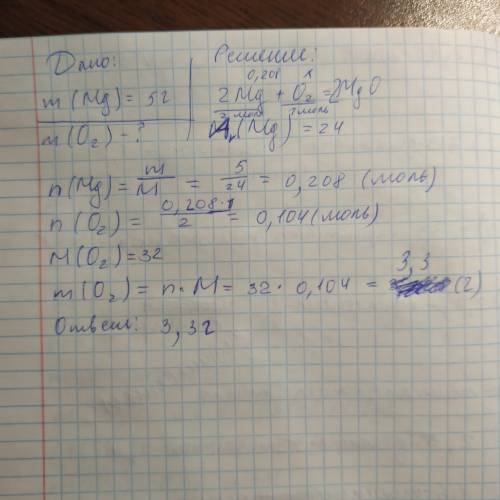 Дано: Решение:
m(Mg) = 5г
0,208 x
2Mg + O₂ = 2MgO
2 моль 1 моль
m(O₂) - ? M(Mg) = 24
n(Mg) = m/M = 5/24 = 0,208 (моль)
n(O₂) = 0,208·1/2 = 0,104 (моль)
M(O₂) = 32
m(O₂) = n·M = 32·0,104 = 3,3 (г)
Ответ: 3,3г